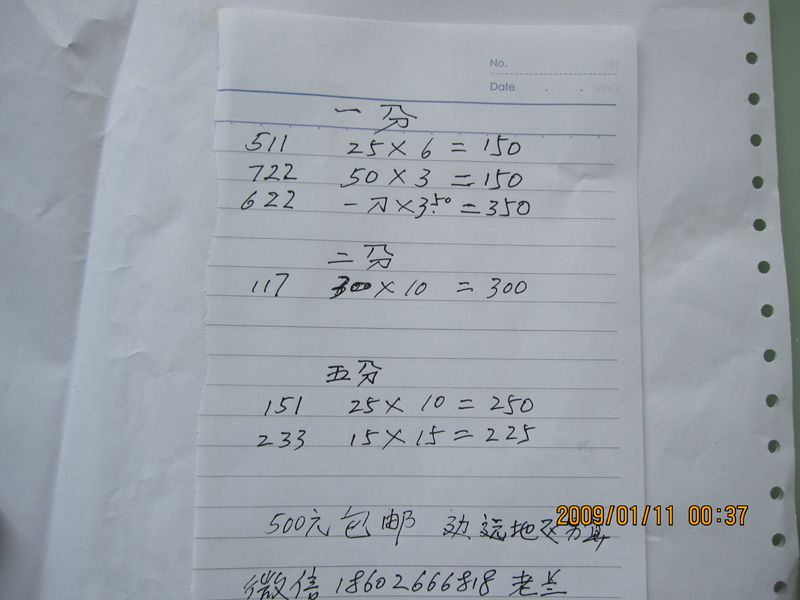 No.
Date
一分
511 25×6=150
722 50×3=150
622 一刀×3.50=350
二分
117 300×10=300
五分
151 25×10=250
233 15×15=225
500元包邮 远地区另
2009/01/11 00:37
微信 18602666818 老兰